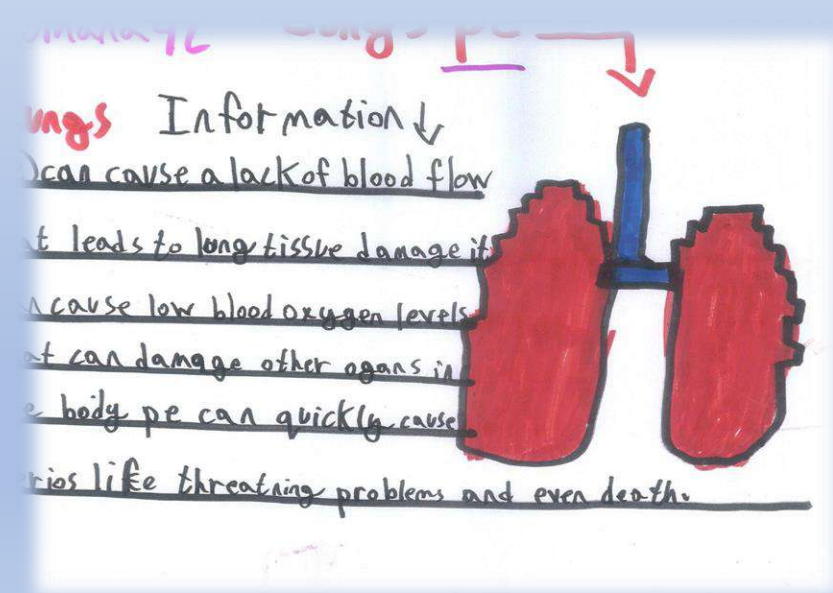 Lungs pe
Information ↓
can cause a lack of blood flow
leads to long tissue damage it
cause low blood oxygen levels
can damage other ogans in
body pe can quickly cause
like threatning problems and even death.